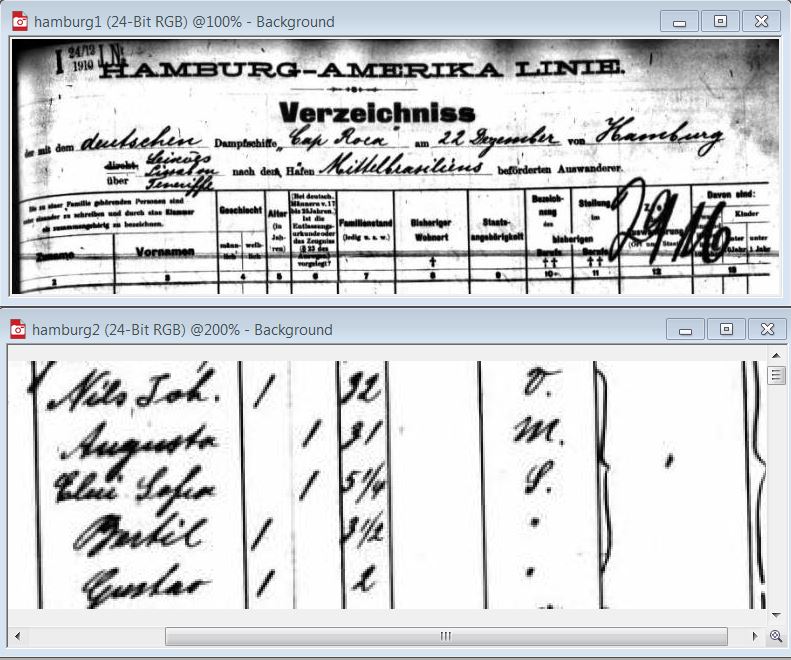 hamburg1 (24-Bit RGB) @100% - Background
I 24/12 1910 I N
HAMBURG-AMERIKA LINIE.
Verzeichniss
der mit dem deutschen Dampfschiffe "Cap Roca" am 22 Dezember von Hamburg
direkt: Leixoes
über Lissabon nach dem Hafen Mittelbrasiliens beförderten Auswanderer.
Teneriffe
Die zu einer Familie gehörenden Personen sind
unter einander zu schreiben und durch eine Klammer
als zusammengehörig zu bezeichnen.
Zuname
Vornamen
Geschlecht
männ-lich
weib-lich
Alter (in Jah-ren)
(Bei deutsch. Männern v. 17 bis 25 Jahren.) Ist die Entlassungs-urkunde oder das Zeugnis vorgelegt?
Familienstand (ledig u. s. w.)
Bisheriger Wohnort †
Staats-angehörigkeit
Bezeich-nung des
Stellung im
bisherigen
Berufs ††
Berufe ††
Davon sind:
Kinder
unter 10 Jahr.
unter 1 Jahr
2 3 4 5 6 7 8 9 10 11 12 13
hamburg2 (24-Bit RGB) @200% - Background
Nils Joh. 1 32 V.
Augusta 1 31 M.
Elni Sofia 1 5 1/4 S.
Bertil 1 3 1/2 "
Gustav 1 2 "